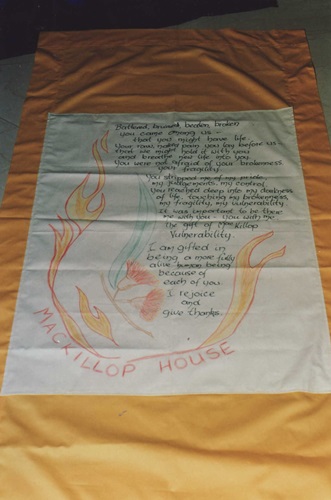 Battered, bruised, beaten, broken
you came among us -
that you might have life.
Your raw, naked pain you lay before us
that we might hold it with you
and breathe new life into you.
You were not afraid of your brokenness
your fragility.
You stripped me of my pride,
my judgements, my control
You reached deep into my darkness
of life, touching my brokenness,
my fragility, my vulnerability.
It was important to be there
me with you - you with me
The gift of MacKillop
Vulnerability.
I am gifted in
being a more fully
alive human being
because of
each of you.
I rejoice
and
give thanks.
MACKILLOP HOUSE